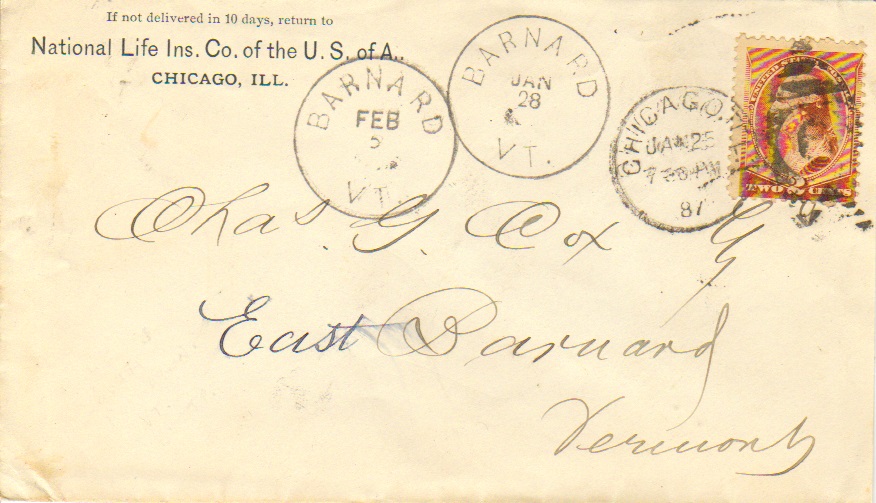 If not delivered in 10 days, return to
National Life Ins. Co. of the U. S. of A.
CHICAGO, ILL.
BARNARD
FEB
VT.
BARNARD
JAN
28
VT.
CHICAGO
JAN 25
PM
87
TWO CENTS
Chas. G. Cox
East Barnard
Vermont